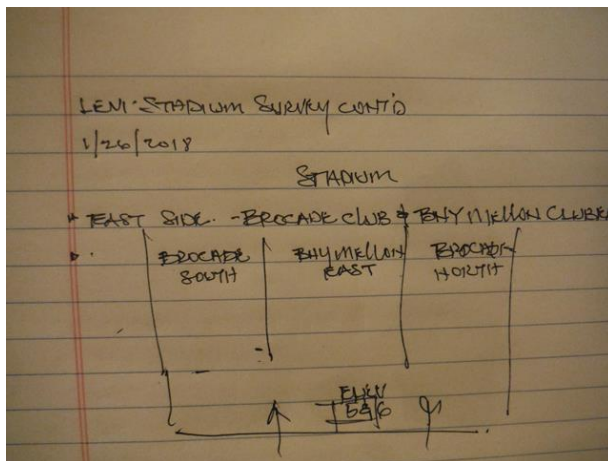 LEVI'STADIUM SURVEY CONT'D
1/26/2018
STADIUM
EAST SIDE. - BROCADE CLUB & BNY MELLON CLUB
BROCADE SOUTH
BNY MELLON EAST
BROCADE NORTH
ELEV
5&6